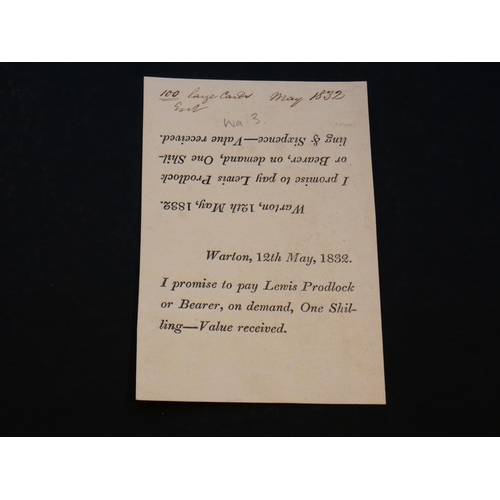 100 large Cards May 1832
Wa 3.
Warton, 12th May, 1832.
I promise to pay Lewis Prodlock
or Bearer, on demand, One Shil-
ling & Sixpence—Value received.
Warton, 12th May, 1832.
I promise to pay Lewis Prodlock
or Bearer, on demand, One Shil-
ling—Value received.